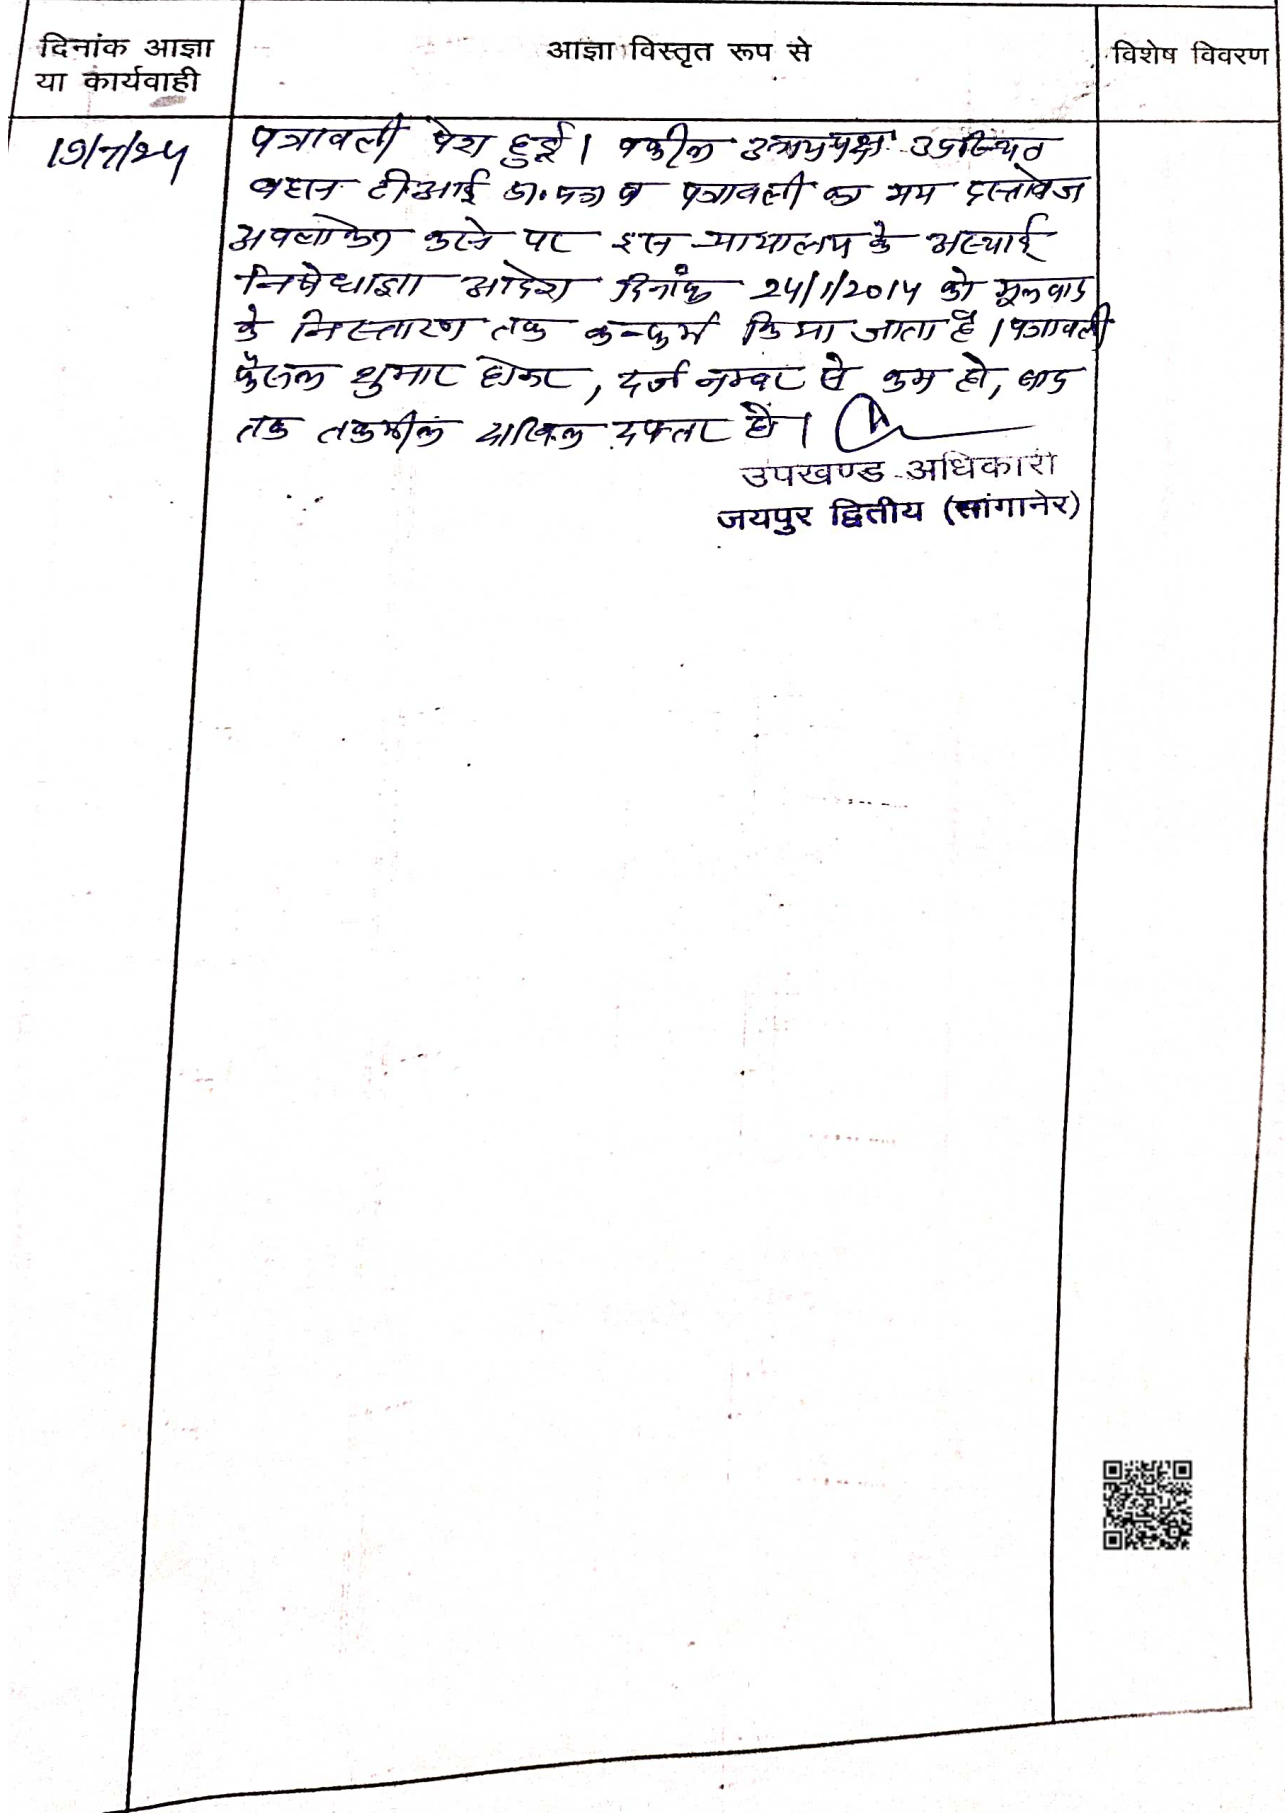 दिनांक आज्ञा
या कार्यवाही
आज्ञा विस्तृत रूप से
विशेष विवरण
पत्रावली पेश हुई। वकील उभयपक्ष उपस्थित
बहस टीआई प्रा.पत्र व पत्रावली का मय दस्तावेज
अवलोकन करने पर इस न्यायालय के अस्थाई
निषेधाज्ञा आदेश दिनांक 24/1/2014 को मूलवाद
के निस्तारण तक कन्फर्म किया जाता है। पत्रावली
फैसल शुमार होकर, दर्ज नम्बर से कम हो, बाद
तकमील दाखिल दफ्तर हो।
उपखण्ड अधिकारी
जयपुर द्वितीय (सांगानेर)